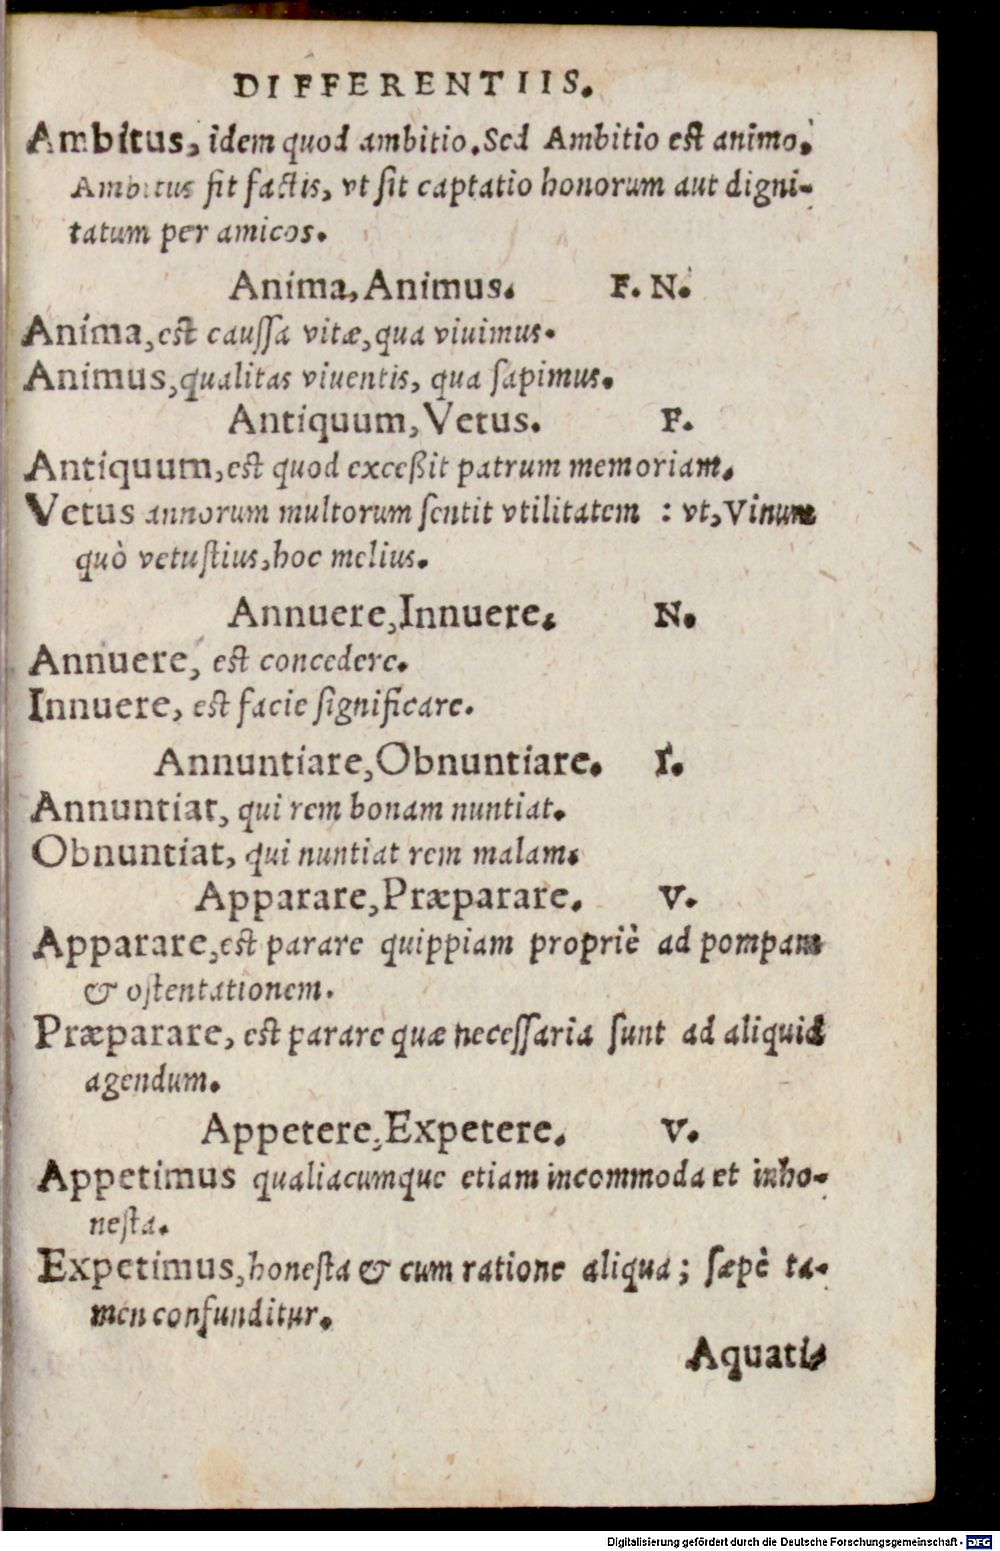 DIFFERENTIIS.
Ambitus, idem quod ambitio. Sed Ambitio est animo.
Ambitus fit factis, vt sit captatio honorum aut digni-
tatum per amicos.
Anima, Animus. F. N.
Anima, est caussa vitæ, qua viuimus.
Animus, qualitas viuentis, qua sapimus.
Antiquum, Vetus. F.
Antiquum, est quod exceßit patrum memoriam.
Vetus annorum multorum sentit vtilitatem : vt, Vinum
quò vetustius, hoc melius.
Annuere, Innuere. N.
Annuere, est concedere.
Innuere, est facie significare.
Annuntiare, Obnuntiare. I.
Annuntiat, qui rem bonam nuntiat.
Obnuntiat, qui nuntiat rem malam.
Apparare, Præparare. V.
Apparare, est parare quippiam propriè ad pompam
& ostentationem.
Præparare, est parare quæ necessaria sunt ad aliquid
agendum.
Appetere, Expetere. V.
Appetimus qualiacumque etiam incommoda et inho-
nesta.
Expetimus, honesta & cum ratione aliqua ; sæpè ta-
men confunditur.
Aquati-
Digitalisierung gefördert durch die Deutsche Forschungsgemeinschaft - DFG